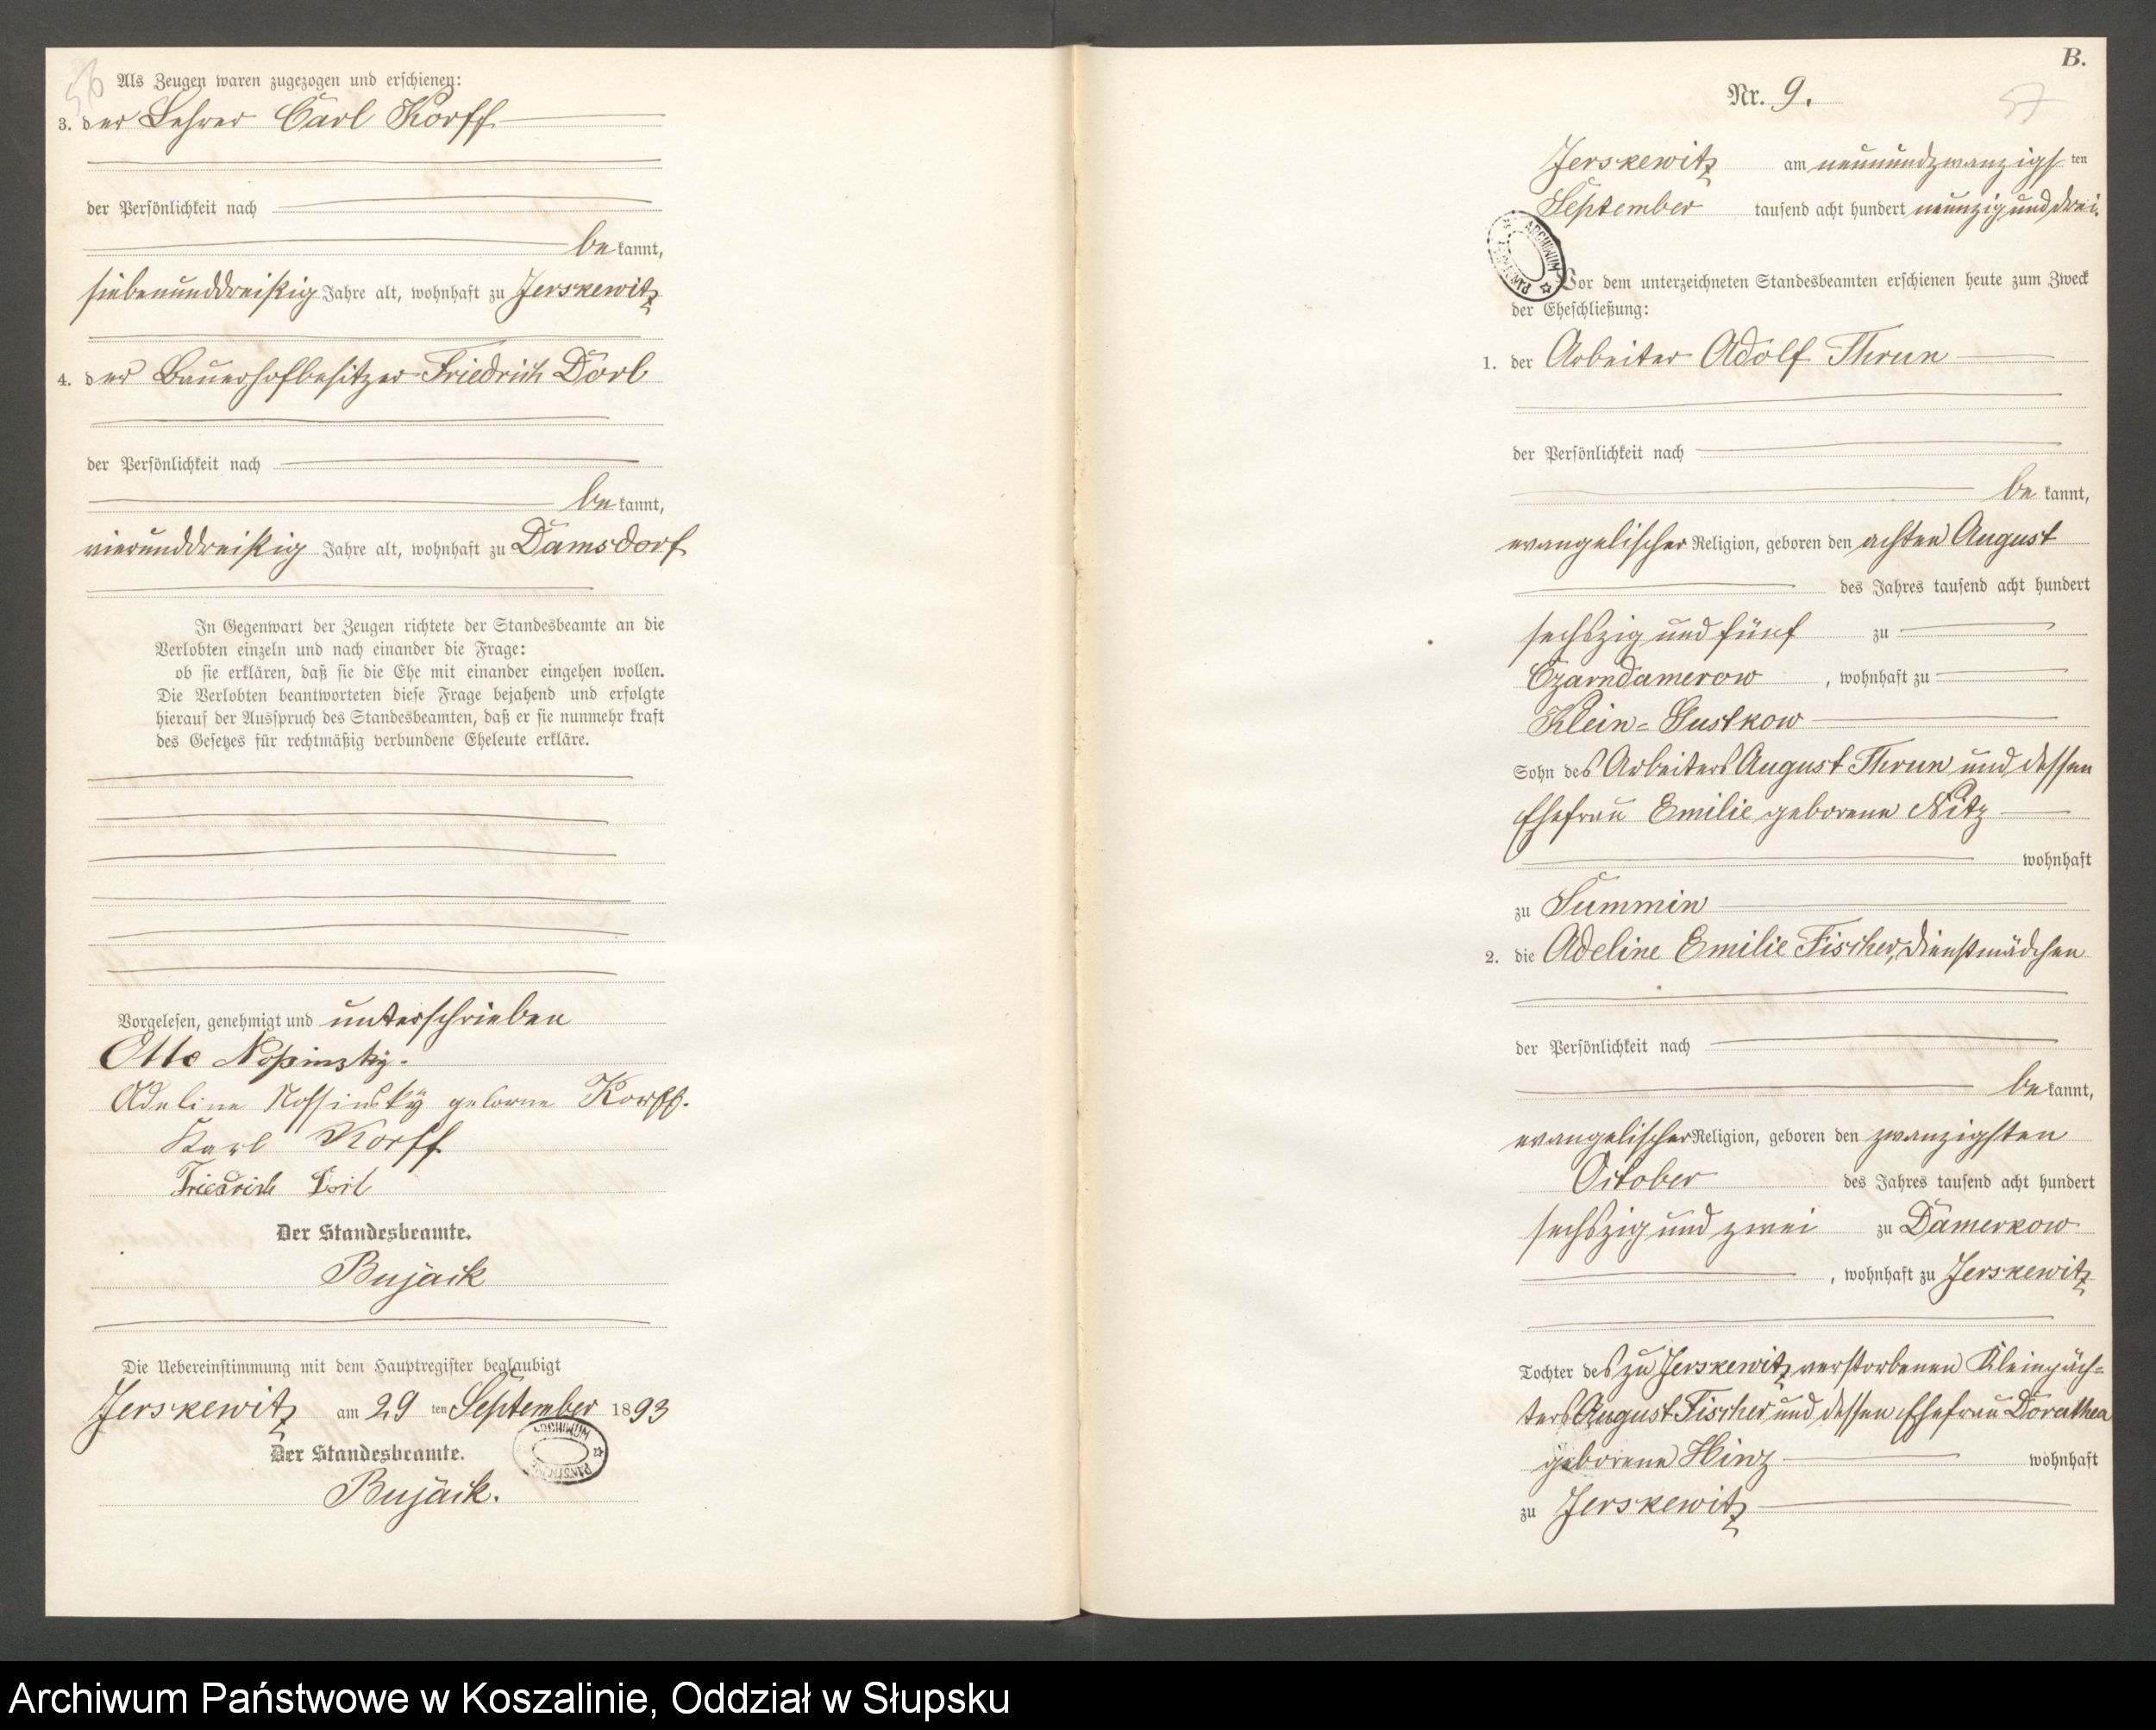 56
Als Zeugen waren zugezogen und erschienen:
3. der Lehrer Carl Korff
der Persönlichkeit nach
be kannt,
siebenunddreißig Jahre alt, wohnhaft zu Jerskewitz
4. der Bauerhofbesitzer Friedrich Dorl
der Persönlichkeit nach
be kannt,
vierunddreißig Jahre alt, wohnhaft zu Damsdorf
In Gegenwart der Zeugen richtete der Standesbeamte an die
Verlobten einzeln und nach einander die Frage:
ob sie erklären, daß sie die Ehe mit einander eingehen wollen.
Die Verlobten beantworteten diese Frage bejahend und erfolgte
hierauf der Ausspruch des Standesbeamten, daß er sie nunmehr kraft
des Gesetzes für rechtmäßig verbundene Eheleute erkläre.
Vorgelesen, genehmigt und unterschrieben
Otto Noßinsky.
Adeline Nossinsky geborne Korff.
Karl Korff
Friedrich Dorl
Der Standesbeamte.
Bujack
Die Uebereinstimmung mit dem Hauptregister beglaubigt
Jerskewitz am 29 ten September 1893
Der Standesbeamte.
ARCHIWUM
Bujack.
B.
Nr. 9.
57
Jerskewitz am neunundzwanzigs ten
September tausend acht hundert neunzig und drei.
ARCHIWUM
Vor dem unterzeichneten Standesbeamten erschienen heute zum Zweck
der Eheschließung:
1. der Arbeiter Adolf Thrun
der Persönlichkeit nach
be kannt,
evangelischer Religion, geboren den achten August
des Jahres tausend acht hundert
sechszig und fünf zu
Czarndamerow, wohnhaft zu
Klein-Gustkow
Sohn des Arbeiters August Thrun und dessen
Ehefrau Emilie geborene Nitz
wohnhaft
zu Summin
2. die Adeline Emilie Fischer, Dienstmädchen
der Persönlichkeit nach
be kannt,
evangelischer Religion, geboren den zwanzigsten
October des Jahres tausend acht hundert
sechszig und zwei zu Damerkow
, wohnhaft zu Jerskewitz
Tochter des zu Jerskewitz verstorbenen Kleinpäch-
ters August Fischer und dessen Ehefrau Dorathea
geborene Hinz wohnhaft
zu Jerskewitz
Archiwum Państwowe w Koszalinie, Oddział w Słupsku